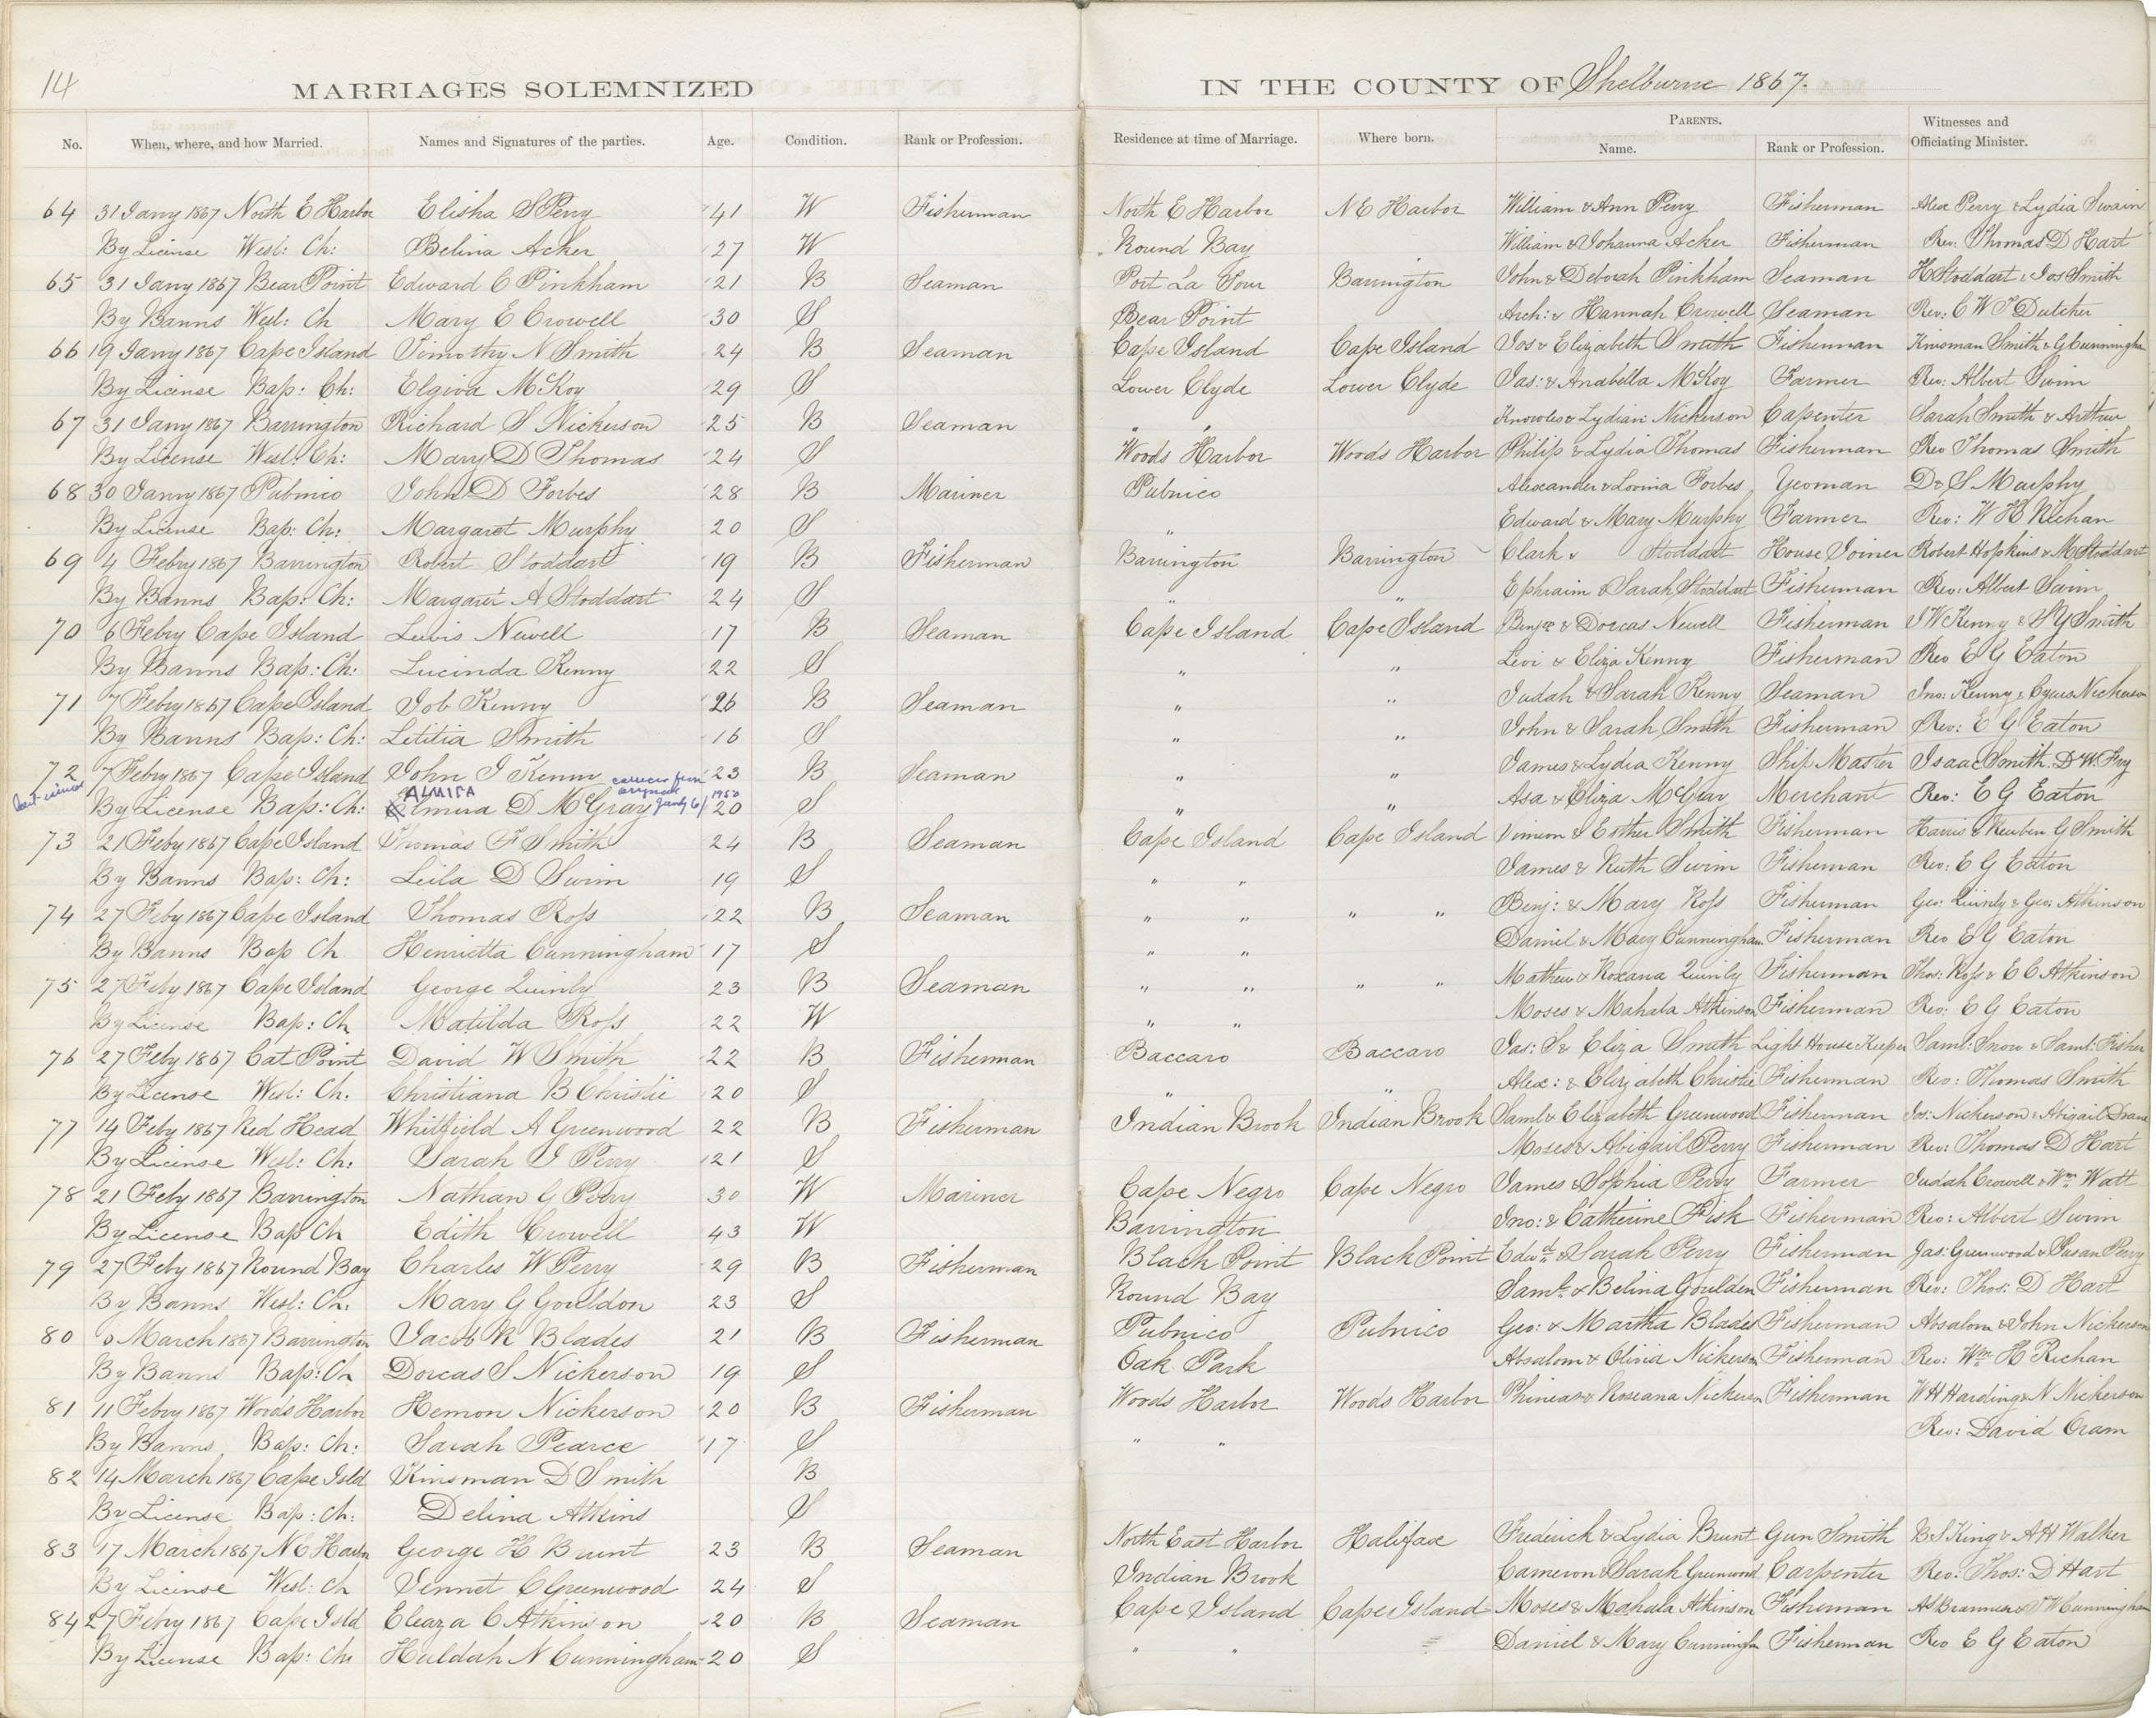 14
MARRIAGES SOLEMNIZED IN THE COUNTY OF Shelburne 1867.
No. When, where, and how Married. Names and Signatures of the parties. Age. Condition. Rank or Profession. Residence at time of Marriage. Where born. PARENTS. Name. Rank or Profession. Witnesses and Officiating Minister.
64 31 Jany 1867 North E Harbor Elisha S Perry 41 W Fisherman North E Harbor N E Harbor William & Ann Perry Fisherman Alex Perry & Lydia Swain
By License Wesl: Ch: Belina Acker 27 W Round Bay William & Johanna Acker Fisherman Rev: Thomas D Hart
65 31 Jany 1867 Bear Point Edward C Pinkham 21 B Seaman Port La Tour Barrington John & Deborah Pinkham Seaman H Stoddart & Jos Smith
By Banns Wesl: Ch Mary E Crowell 30 S Bear Point Arch: & Hannah Crowell Seaman Rev: C W T Dutcher
66 19 Jany 1867 Cape Island Timothy N Smith 24 B Seaman Cape Island Cape Island Jos & Elizabeth Smith Fisherman Kinsman Smith & G Cunningham
By License Bap: Ch: Elgiva McKoy 29 S Lower Clyde Lower Clyde Jas: & Anabella McKoy Farmer Rev: Albert Swim
67 31 Jany 1867 Barrington Richard S Nickerson 25 B Seaman " " Knowles & Lydian Nickerson Carpenter Sarah Smith & Arthur
By License Wesl: Ch: Mary D Thomas 24 S Woods Harbor Woods Harbor Philip & Lydia Thomas Fisherman Rev Thomas Smith
68 30 Janry 1867 Pubnico John D Forbes 28 B Mariner Pubnico Alexander & Lovina Forbes Yeoman D & S Murphy
By License Bap: Ch: Margaret Murphy 20 S " Edward & Mary Murphy Farmer Rev: W H Richan
69 4 Febry 1867 Barrington Robert Stoddart 19 B Fisherman Barrington Barrington Clark & Stoddart House Joiner Robert Hopkins & M Stoddart
By Banns Bap: Ch: Margaret A Stoddart 24 S " " Ephraim & Sarah Stoddart Fisherman Rev: Albert Swim
70 6 Febry Cape Island Lewis Newell 17 B Seaman Cape Island Cape Island Benjn & Dorcas Newell Fisherman J W Kenny & H Y Smith
By Banns Bap: Ch: Lucinda Kenny 22 S " " Levi & Eliza Kenny Fisherman Rev E G Eaton
71 7 Febry 1867 Cape Island Job Kenny 26 B Seaman " " Judah & Sarah Kenny Seaman Jno: Kenny & Cyrus Nickerson
By Banns Bap: Ch: Letitia Smith 16 S " " John & Sarah Smith Fisherman Rev: E G Eaton
72 7 Febry 1867 Cape Island John I Kenny 23 B Seaman " " James & Lydia Kenny Ship Master Isaac Smith. D W. Fry
ALMIRA 1950
By License Bap: Ch: Elmira D McGray July 6/ 20 S " " Asa & Eliza McGray Merchant Rev: E G Eaton
73 21 Feby 1867 Cape Island Thomas F Smith 24 B Seaman Cape Island Cape Island & Esther Smith Fisherman Harris & Reuben G Smith
By Banns Bap: Ch: Leila D Swim 19 S " " James & Ruth Swim Fisherman Rev: E G Eaton
74 27 Feby 1867 Cape Island Thomas Ross 22 B Seaman " " " " Benj: & Mary Ross Fisherman Geo: Quinly & Geo: Atkinson
By Banns Bap Ch Henrietta Cunningham 17 S " " Daniel & Mary Cunningham Fisherman Rev E G Eaton
75 27 Feby 1867 Cape Island George Quinly 23 B Seaman " " " " Mathew & Roxana Quinly Fisherman Thos: Ross & E C Atkinson
By License Bap: Ch Matilda Ross 22 W " " Moses & Mahala Atkinson Fisherman Rev: E G Eaton
76 27 Feby 1867 Cat Point David W Smith 22 B Fisherman Baccaro Baccaro Jas: S & Eliza Smith Light House Keeper Saml: Snow & Saml: Fisher
By License Wesl: Ch. Christiana B Christie 20 S " " Alex: & Elizabeth Christie Fisherman Rev: Thomas Smith
77 14 Feby 1867 Red Head Whitfield A Greenwood 22 B Fisherman Indian Brook Indian Brook Saml & Elizabeth Greenwood Fisherman Jos: Nickerson & Abigail Doane
By License Wesl: Ch: Sarah I Perry 21 S Moses & Abigail Perry Fisherman Rev: Thomas D Hart
78 21 Feby 1867 Barrington Nathan G Perry 30 W Mariner Cape Negro Cape Negro James & Sophia Perry Farmer Judah Crowell & Wm Watt
By License Bap Ch Edith Crowell 43 W Barrington Jno: & Catherine Fisk Fisherman Rev: Albert Swim
79 27 Feby 1867 Round Bay Charles W Perry 29 B Fisherman Black Point Black Point Edwd: & Sarah Perry Fisherman Jas: Greenwood & Susan Perry
By Banns Wesl: Ch. Mary G Gouldon 23 S Round Bay Saml & Belina Goulden Fisherman Rev: Thos: D Hart
80 6 March 1867 Barrington Jacob R Blades 21 B Fisherman Pubnico Pubnico Geo: & Martha Blades Fisherman Absalom & John Nickerson
By Banns Bap: Ch Dorcas S Nickerson 19 S Oak Park Absalom & Olivia Nickerson Fisherman Rev: Wm H Richan
81 11 Febry 1867 Woods Harbor Hemon Nickerson 20 B Fisherman Woods Harbor Woods Harbor Phineas & Roseana Nickerson Fisherman W H Harding & N Nickerson
By Banns, Bap: Ch: Sarah Pearce 17 S " " Rev: David Oram
82 14 March 1867 Cape Isld Kinsman D Smith B
By License Bap: Ch: Delina Atkins S
83 17 March 1867 N E Harbr George H Brunt 23 B Seaman North East Harbor Halifax Frederick & Lydia Brunt Gun Smith B S King & A H Walker
By License Wesl: Ch Jennet C Greenwood 24 S Indian Brook Cameron & Sarah Greenwood Carpenter Rev: Thos: D Hart
84 27 Febry 1867 Cape Isld Eleaza C Atkinson 20 B Seaman Cape Island Cape Island Moses & Mahala Atkinson Fisherman
By License Bap: Ch: Huldah N Cunningham 20 S " " Daniel & Mary Cunningham Fisherman Rev E G Eaton